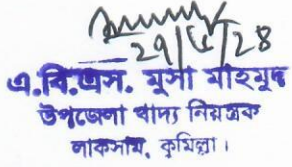 ২৭/৫/২৪
এ.বি.এস. মুসা মাহমুদ
উপজেলা খাদ্য নিয়ন্ত্রক
লাকসাম, কুমিল্লা।